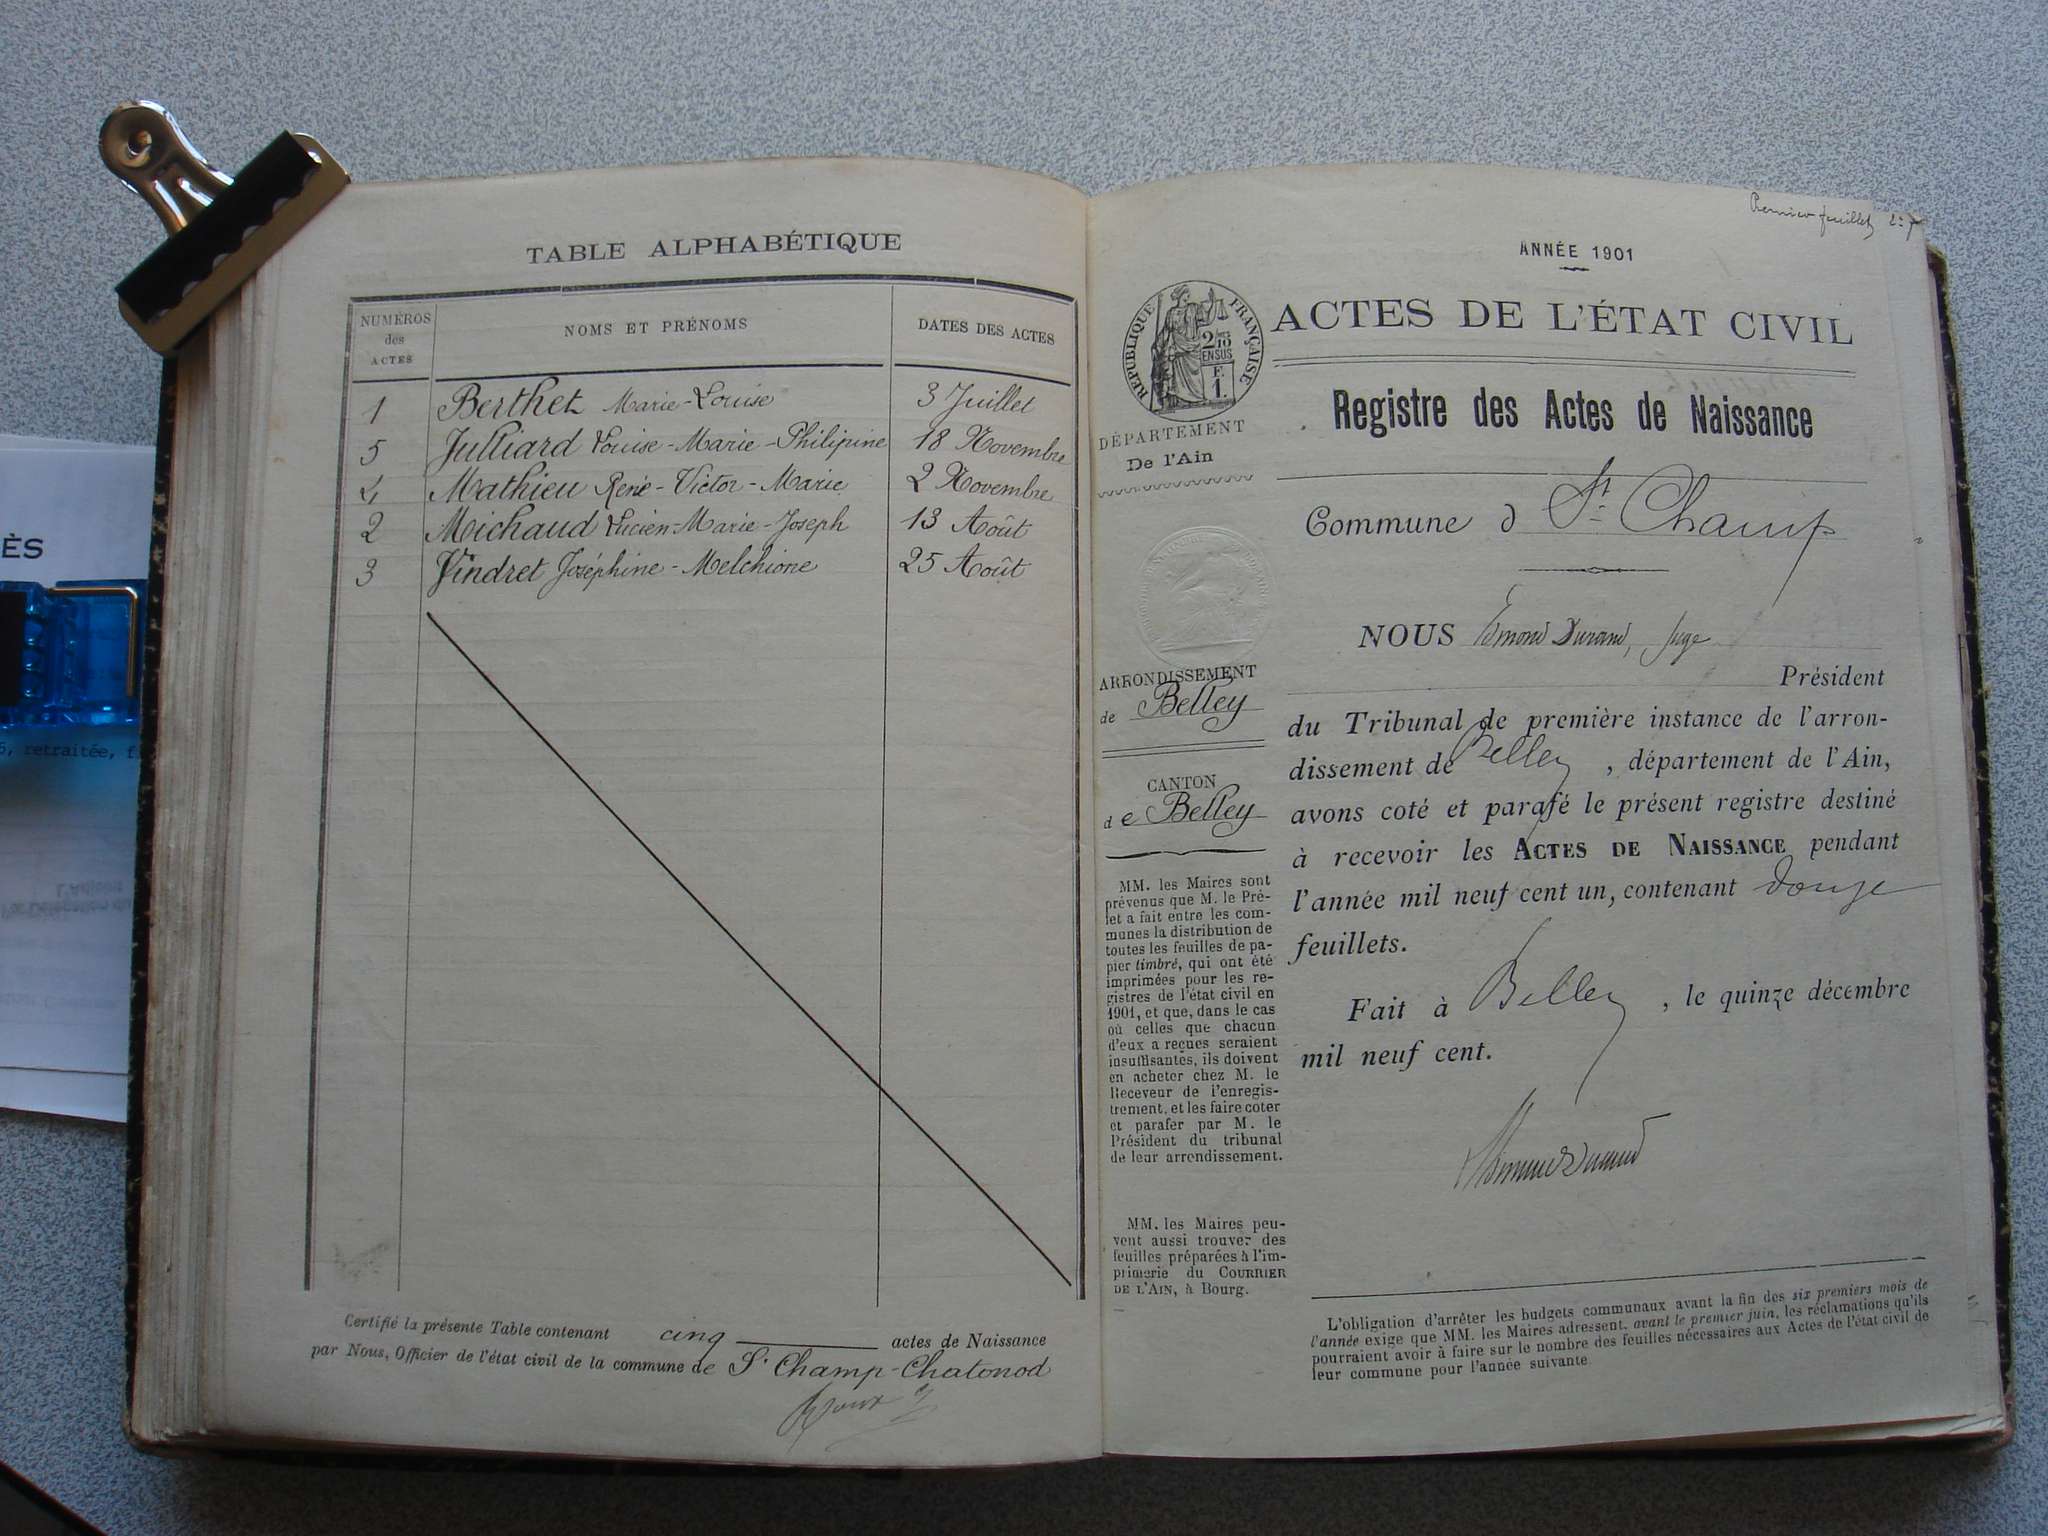 TABLE ALPHABÉTIQUE
NUMÉROS
des
ACTES
NOMS ET PRÉNOMS
DATES DES ACTES
1 Berthet Marie-Louise 3 Juillet
5 Julliard Louise-Marie-Philipine 18 Novembre
4 Mathieu René-Victor-Marie 2 Novembre
2 Michaud Lucien-Marie-Joseph 13 Août
3 Vindret Joséphine-Melchione 25 Août
Certifié la présente Table contenant cinq actes de Naissance
par Nous, Officier de l'état civil de la commune de St Champ-Chatonod
Premier feuillet
ANNÉE 1901
RÉPUBLIQUE FRANÇAISE
2/10
EN SUS
F.
1.
ACTES DE L'ÉTAT CIVIL
Registre des Actes de Naissance
DÉPARTEMENT
De l'Ain
Commune d St Champ
NOUS Edmond Durand, Juge
Président
du Tribunal de première instance de l'arron-
dissement de Belley, département de l'Ain,
avons coté et parafé le présent registre destiné
à recevoir les ACTES DE NAISSANCE pendant
l'année mil neuf cent un, contenant douze
feuillets.
Fait à Belley, le quinze décembre
mil neuf cent.
ARRONDISSEMENT
de Belley
CANTON
de Belley
MM. les Maires sont
prévenus que M. le Pré-
fet a fait entre les com-
munes la distribution de
toutes les feuilles de pa-
pier timbré, qui ont été
imprimées pour les re-
gistres de l'état civil en
1901, et que, dans le cas
où celles que chacun
d'eux a reçues seraient
insuffisantes, ils doivent
en acheter chez M. le
Receveur de l'enregis-
trement, et les faire coter
et parafer par M. le
Président du tribunal
de leur arrondissement.
MM. les Maires peu-
vent aussi trouver des
feuilles préparées à l'im-
primerie du COURRIER
DE L'AIN, à Bourg.
L'obligation d'arrêter les budgets communaux avant la fin des six premiers mois de
l'année exige que MM. les Maires adressent, avant le premier juin, les réclamations qu'ils
pourraient avoir à faire sur le nombre des feuilles nécessaires aux Actes de l'état civil de
leur commune pour l'année suivante.
ÈS
retraitée, f